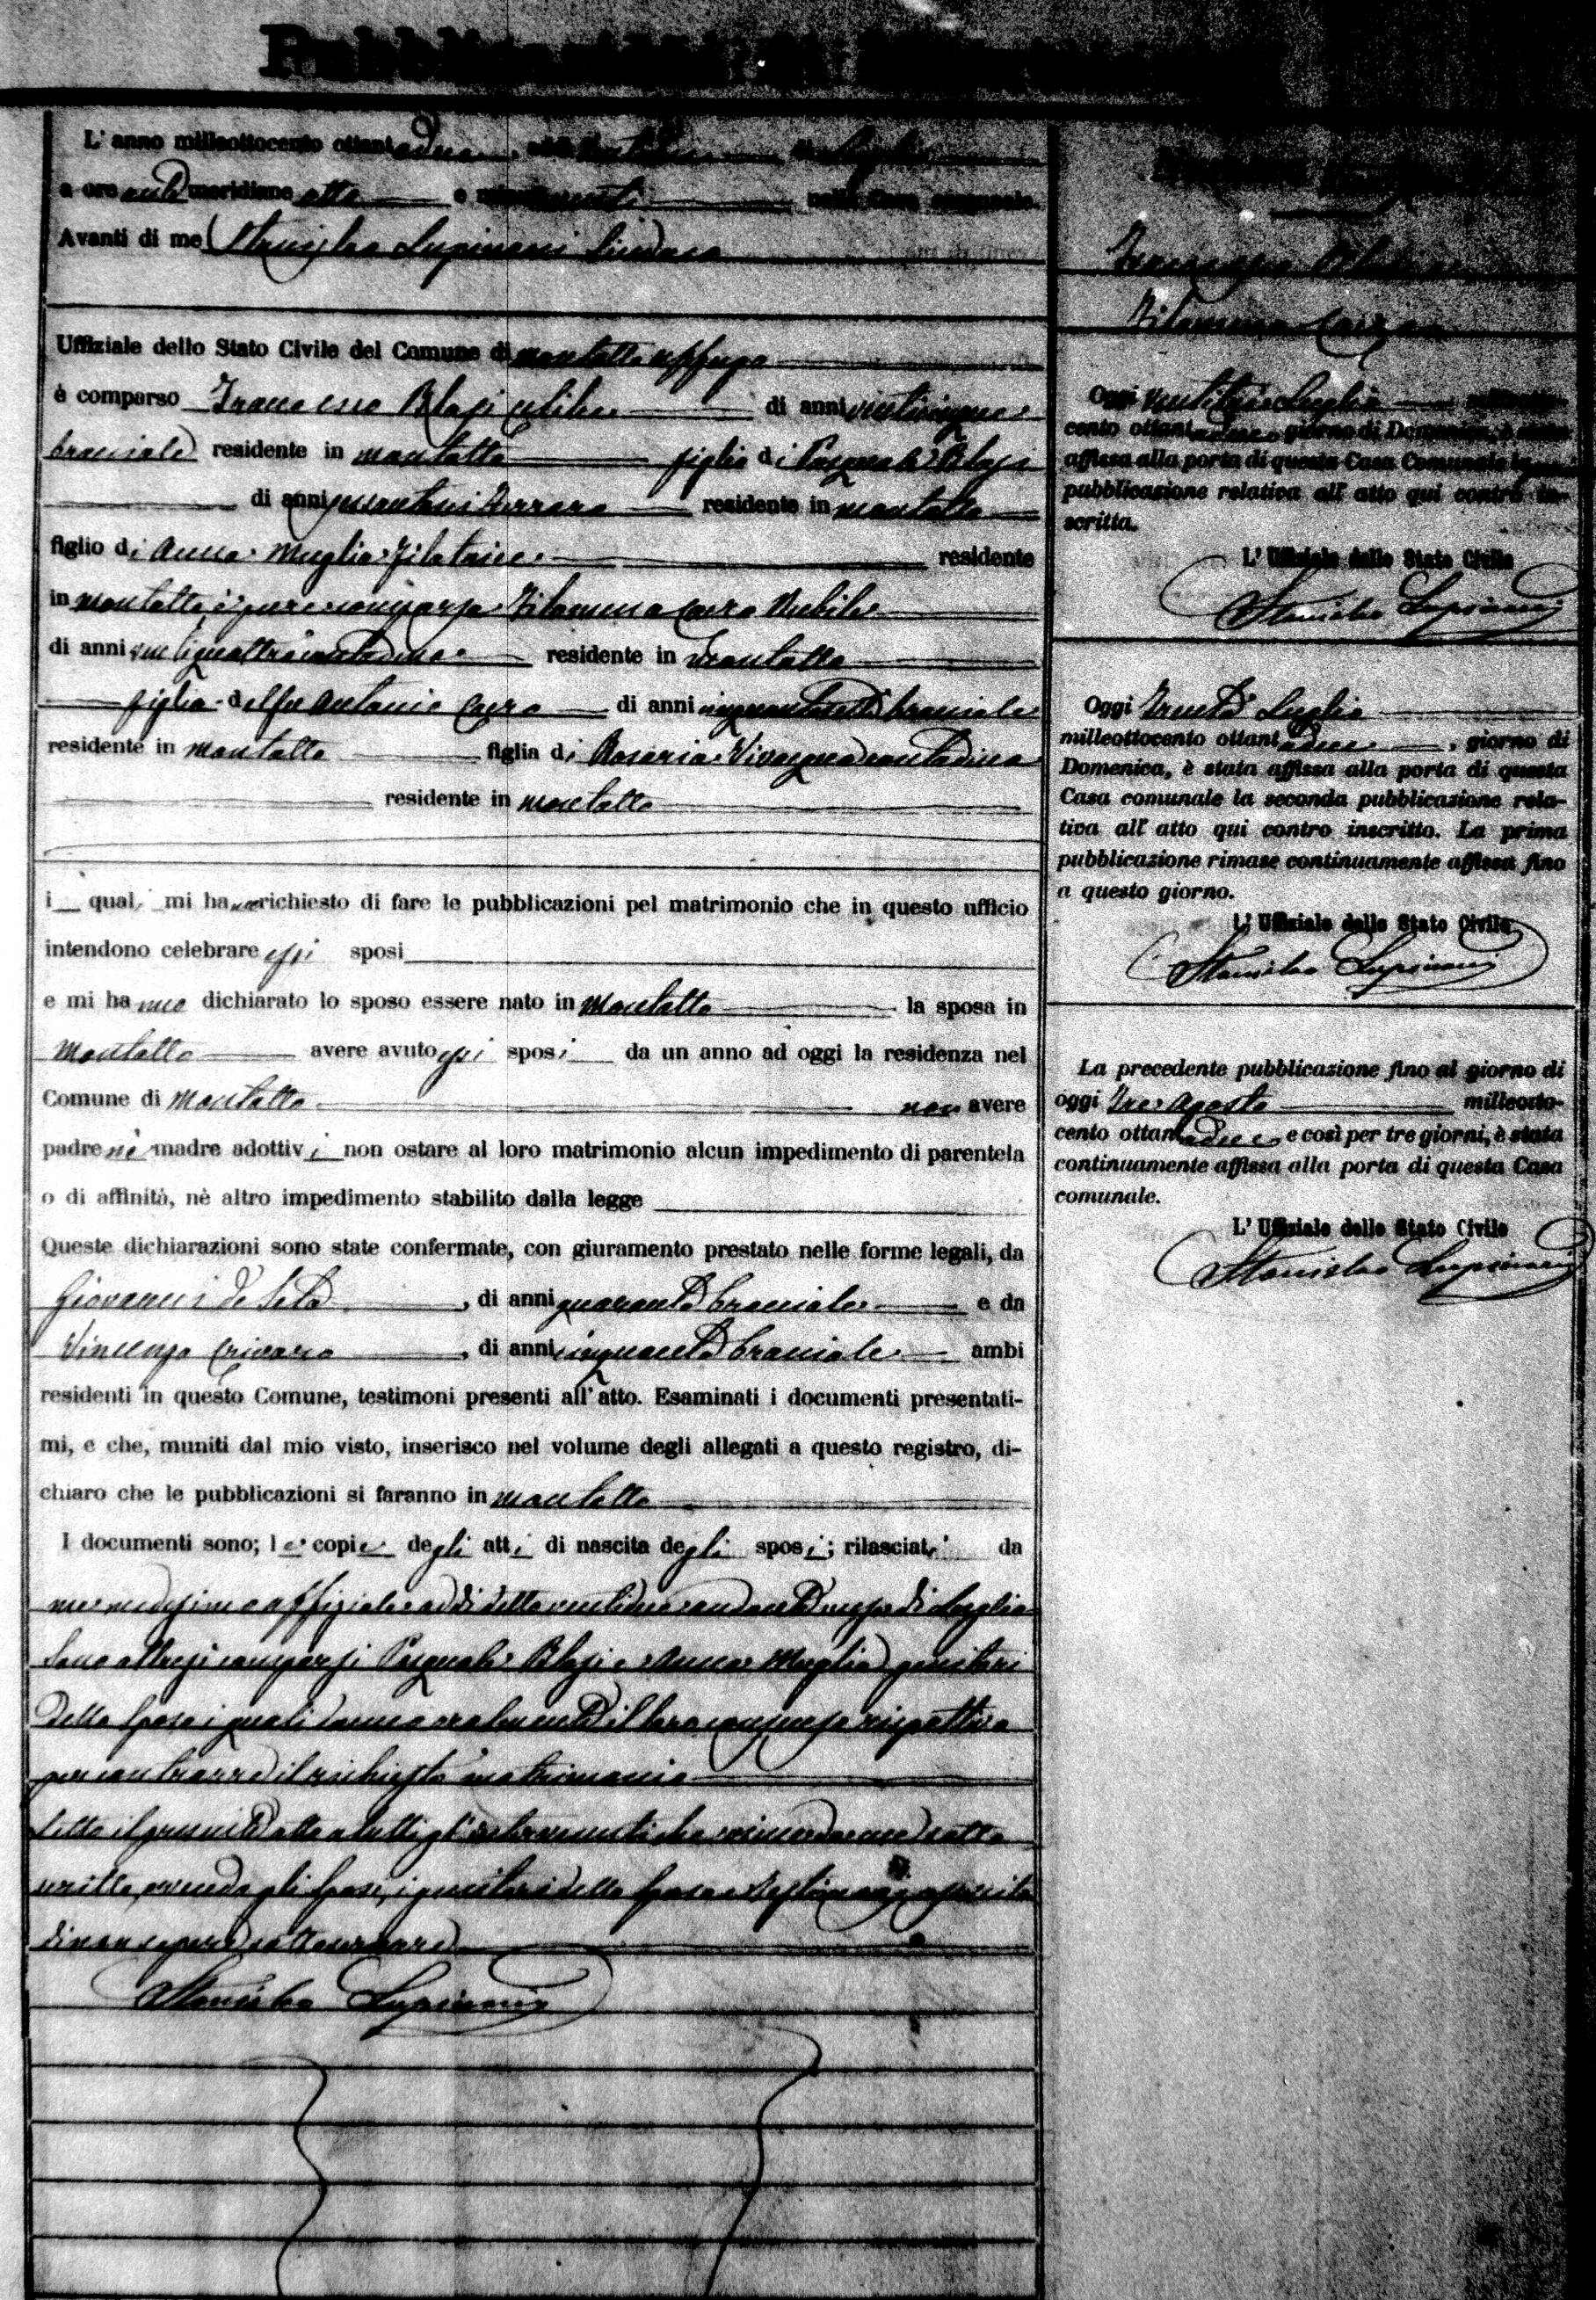 Pubblicazioni di
L' anno milleottocento ottantadue, addì ventidue di Luglio
a ore anti meridiane otto e minuti venti nella Casa comunale.
Avanti di me Stanislao Lupinacci Sindaco
Uffiziale dello Stato Civile del Comune di Montalto Uffugo
è comparso Francesco Blasi celibe di anni venticinque
bracciale residente in Montalto figlio di Pasquale Blasi
di anni residente in Montalto
figlio di Anna Muglia filatrice residente
in Montalto è pure comparsa Filomena Cairo Nubile
di anni ventiquattro contadina residente in Montalto
figlia del fu Antonio Cairo di anni cinquantasette bracciale
residente in Montalto figlia di Rosaria Vivacqua contadina
residente in Montalto
i quali mi hanno richiesto di fare le pubblicazioni pel matrimonio che in questo ufficio
intendono celebrare essi sposi
e mi hanno dichiarato lo sposo essere nato in Montalto la sposa in
Montalto avere avuto essi sposi da un anno ad oggi la residenza nel
Comune di Montalto non avere
padre nè madre adottivi non ostare al loro matrimonio alcun impedimento di parentela
o di affinità, nè altro impedimento stabilito dalla legge
Queste dichiarazioni sono state confermate, con giuramento prestato nelle forme legali, da
Giovanni de Seta, di anni quaranta bracciale e da
Vincenzo Crivaro, di anni cinquanta bracciale ambi
residenti in questo Comune, testimoni presenti all' atto. Esaminati i documenti presentati-
mi, e che, muniti dal mio visto, inserisco nel volume degli allegati a questo registro, di-
chiaro che le pubblicazioni si faranno in Montalto
I documenti sono; le copie degli atti di nascita degli sposi; rilasciati da
me medesimo uffiziale addì detto ventidue andante mese di Luglio
Sono altresì comparsi Pasquale Blasi e Anna Muglia genitori
dello sposo i quali danno oralmente il loro consenso rispettivo
per contrarre il richiesto matrimonio
Letto il presente atto a tutti gl' intervenuti sotto
scritto, avendo gli sposi, i genitori dello sposo e testimoni asserito
di non sapere sottoscrivere
Stanislao Lupinacci
Francesco Blasi
Filomena Cairo
Oggi ventitre Luglio milleotto-
cento ottantadue giorno di Domenica, è stata
affissa alla porta di questa Casa Comunale la prima
pubblicazione relativa all' atto qui contro in-
scritto.
L' Uffiziale dello Stato Civile
Stanislao Lupinacci
Oggi Trenta Luglio
milleottocento ottantadue, giorno di
Domenica, è stata affissa alla porta di questa
Casa comunale la seconda pubblicazione rela-
tiva all' atto qui contro inscritto. La prima
pubblicazione rimase continuamente affissa fino
a questo giorno.
L' Uffiziale dello Stato Civile
Stanislao Lupinacci
La precedente pubblicazione fino al giorno di
oggi tre Agosto milleotto-
cento ottantadue e così per tre giorni, è stata
continuamente affissa alla porta di questa Casa
comunale.
L' Uffiziale dello Stato Civile
Stanislao Lupinacci